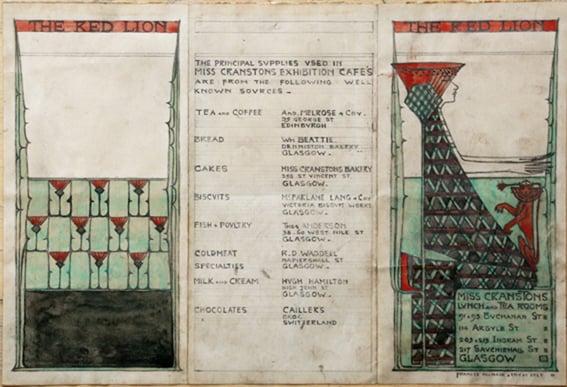 THE RED LION
THE PRINCIPAL SUPPLIES VSED IN
MISS CRANSTONS EXHIBITION CAFÉS
ARE FROM THE FOLLOWING WELL
KNOWN SOURCES -
TEA AND COFFEE AND. MELROSE & COY.
GEORGE ST
EDINBVRGH
BREAD WM BEATTIE
DENNISTON BAKERY
GLASGOW.
CAKES MISS CRANSTONS BAKERY
ST VINCENT ST
GLASGOW.
BISCVITS MCFARLANE LANG & COY
VICTORIA BISCVIT WORKS
GLASGOW.
FISH & POVLTRY THOS ANDERSON
WEST NILE ST
GLASGOW.
COLDMEAT R.D. WADDELL
SPECIALTIES NAPIERSHALL ST
GLASGOW.
MILK AND CREAM HVGH HAMILTON
HIGH JOHN ST
GLASGOW.
CHOCOLATES CAILLERS
BROC
SWITZERLAND
THE RED LION
MISS CRANSTONS
LVNCH AND TEA ROOMS
91-93 BVCHANAN ST
114 ARGYLE ST
205 & 215 INGRAM ST
217 SAVCHIEHALL ST
GLASGOW